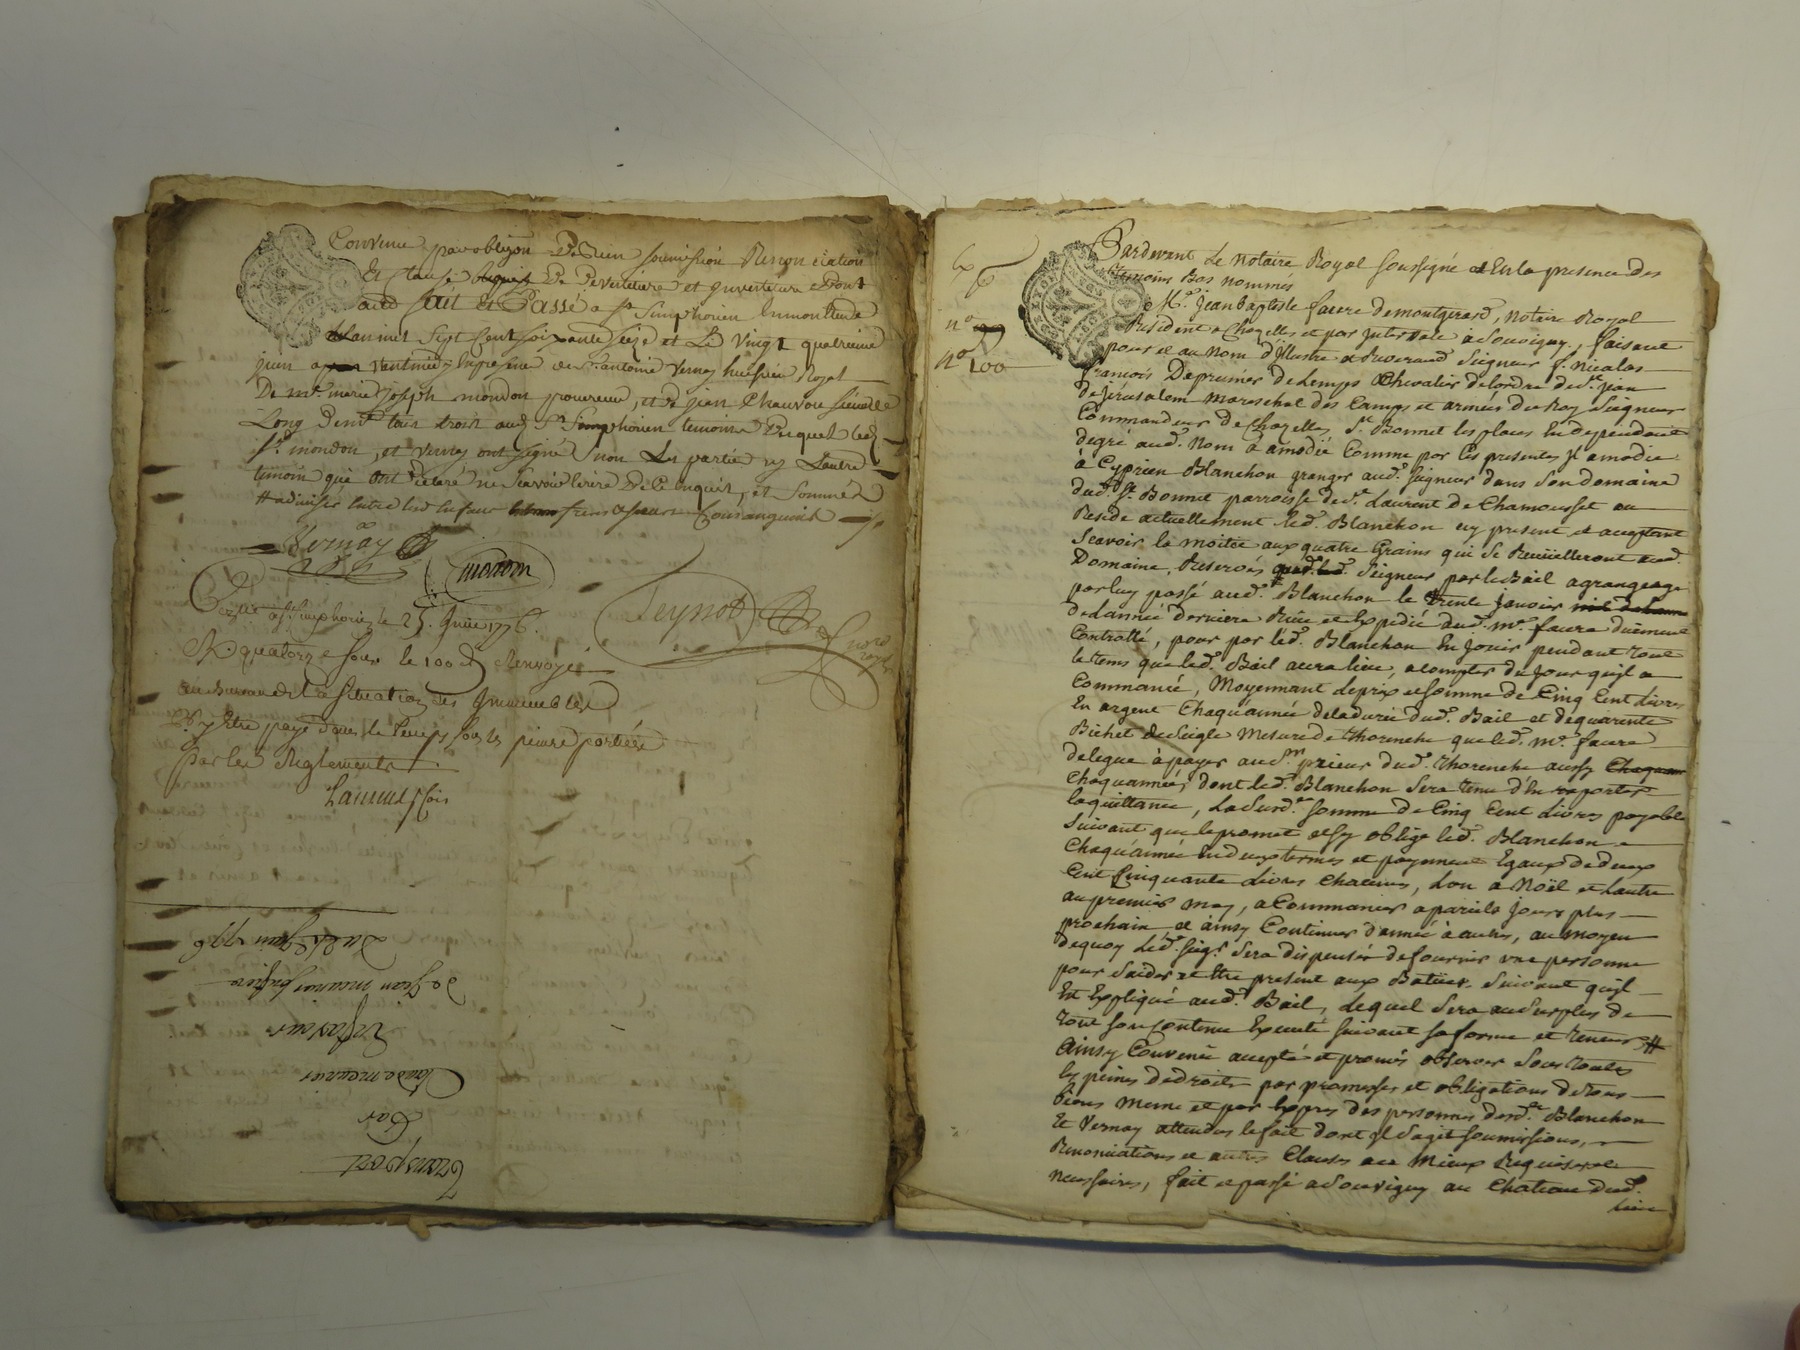 Convenu par obligon De Bien soumission Renonciation
Et Clause De Deverteture et ouverteture Dont
acte fait et Passé a St Simphorien
L'an mil Sept Cent soixante seize et Le Vingt quatrieme
juin apres En presence de Sr. antoine Vernay huissier Royal
De me. marie joseph mondon procureur, et de jean Chauvon
Long Demt tous trois aud St Simphorien temoins Lesquel led
Sr. mondon, et Vernay ont signé non Les parties ny L'autre
temoin qui ont Declaré ne Scavoir Ecrire De Ce Enquis, et Sommés
# a diviser Entre freres a Sœurs Consanguins
Vernay
mondon
Teynot
Nore
royal
a St. simphorien le 25. Juin 1776.
R. quatorze sous le 100 d Renvoyé
au Bureau de la Situation des Immeubles
Pr. y Etre payé dans le temps sous les peines portées
Par les Reglements.
Transport
Par
Claude meunier
En faveur
de Jean meunier
Du 24 Juin 1776
nº
nº 100
Pardevant Le Notaire Royal soussigné et En la presence des
temoins Bas nommés
Me. Jean Baptiste faure de montgirard, Notaire Royal
Resident a Chazelles et par Intervale à Souvigny, faisant
pour et au Nom d'Illustre et Reverend Seigneur f. Nicolas
francois De prunier de Lemps Chevalier de l'ordre de St. Jean
de Jérusalem marechal des Camps et armées du Roy Seigneur
Commandeur de Chazelles St. Bonnet les places En Dependant
degré aud. Nom à amodié Comme par les presentes Il amodie
à Cyprien Blanchon granger aud. Seigneur dans son domaine
dud. St. Bonnet parroisse de St. Laurent de Chamousset ou
Reside actuellement led. Blanchon icy present et acceptant
Scavoir la moitié aux quatre Grains qui se Recueilleront aud.
Domaine, Reservés aud. Seigneur par le Bail a grangeage
par luy passé aud. Blanchon le trente Janvier
de L'année derniere Reçu et Expedié dud. me. faure duëment
Controllé, pour par led. Blanchon En Jouir pendant tout
le tems que led. Bail aura lieu, a compter du Jour qu'il a
Commancé, Moyennant le prix et somme de Cinq Cent livres
En argent Chaque année de la durée dud. Bail et de quarante
Bichet de Seigle Mesure de thorenche que led. me. faure
delegue à payer aud. sr. prieur dud. thorenche aussy
Chaque année, dont led. Blanchon Sera tenu d'En raporter
la quittance, La Susd. somme de Cinq Cent livres payable
Suivant que le promet et s'y oblige led. Blanchon
Chaque année En deux termes et payemens Egaux de deux
Cent Cinquante livres chacuns, L'un a Noël et L'autre
au premier may, a Commancer a pareils Jours plus
prochain et ainsy Continuer d'année à autre, au moyen
de quoy Led. Seigr. Sera dispensé de fournir une personne
pour s'aider et Etre present aux Battues. Suivant qu'il
Est Expliqué aud. Bail, Lequel Sera au Surplus de
tout son Contenu Executé suivant sa forme et teneur, #
Ainsy Convenü accepté et promis observer Sous toutes
les peines de droits par promesses et obligations de tous
biens meme et par Exprès des personnes desd. Blanchon
Et Vernay attendu le fait dont Il s'agit soumissions,
Renonciations et autres Clauses au Mieux Requises et
necessaires, fait et passé a Souvigny au Chateau dud.
lieu